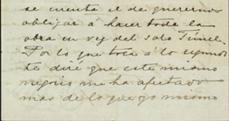 se cuenta el de querernos
obligar á hacer toda la
obra en vez del solo Tunel.
Por lo que toca á lo segundo
te diré que este mismo
negocio me ha afectado
mas de lo que yo mismo